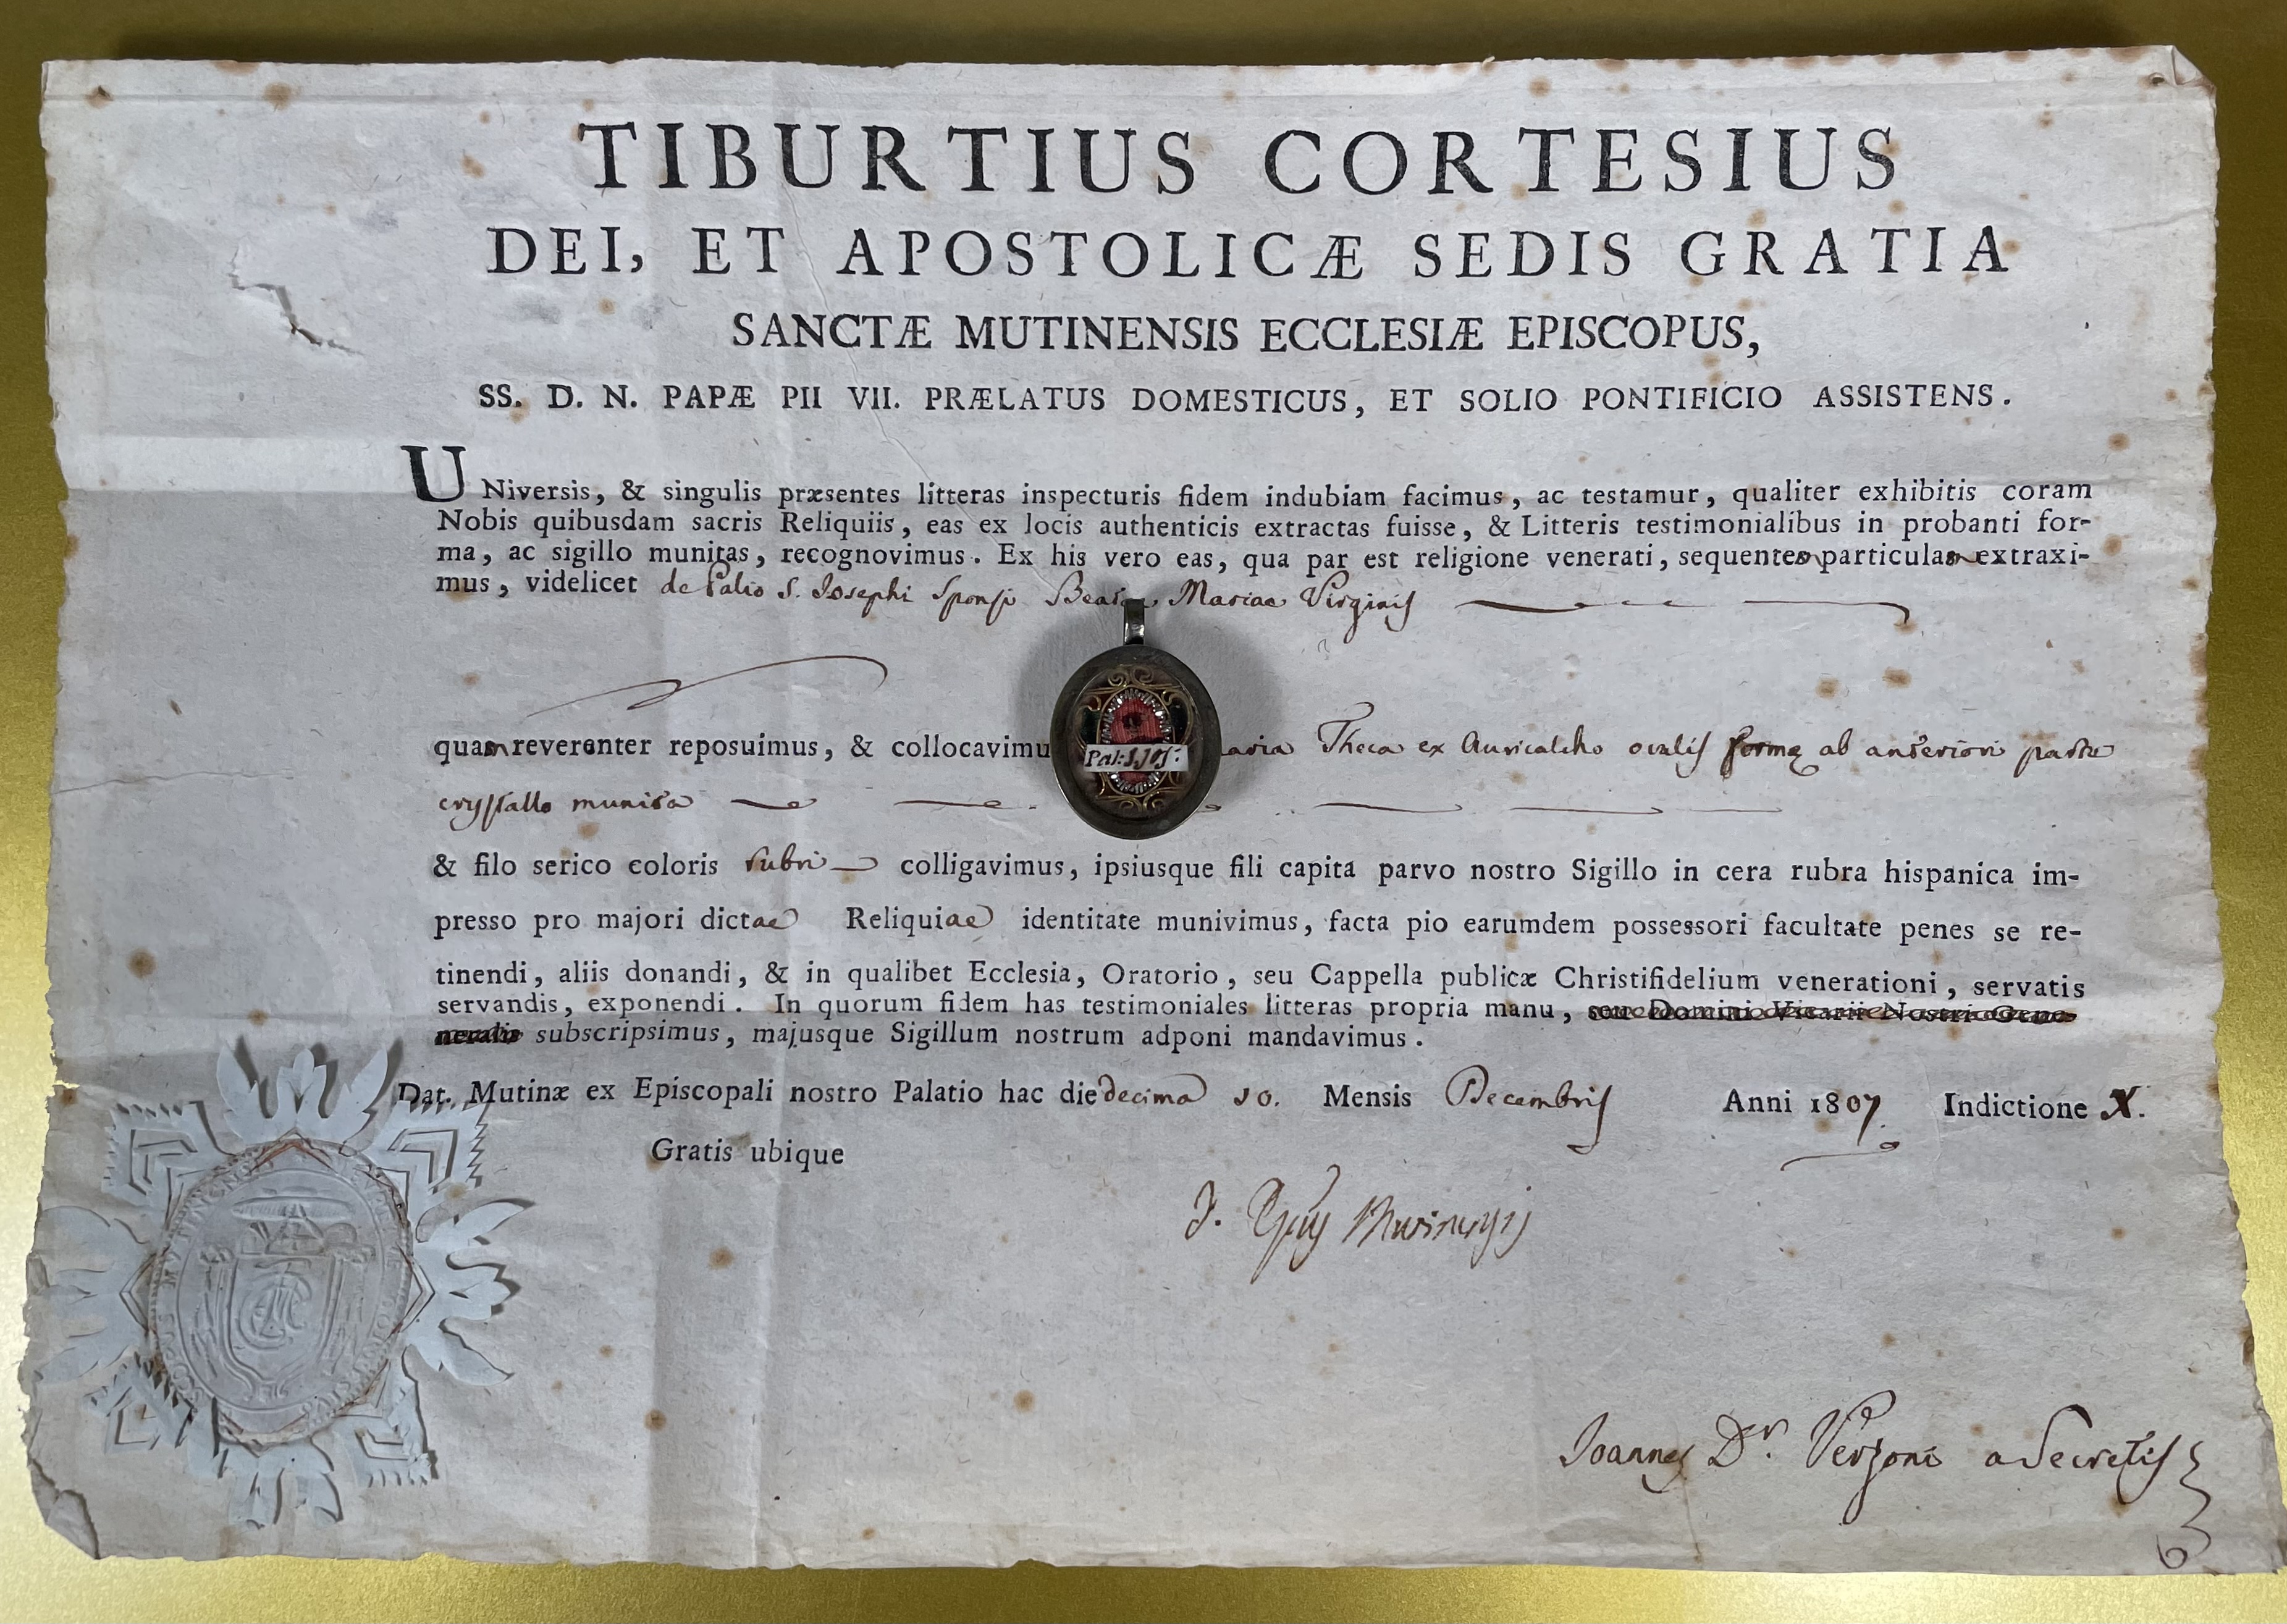 TIBURTIUS CORTESIUS
DEI, ET APOSTOLICÆ SEDIS GRATIA
SANCTÆ MUTINENSIS ECCLESIÆ EPISCOPUS,
SS. D. N. PAPÆ PII VII. PRÆLATUS DOMESTICUS, ET SOLIO PONTIFICIO ASSISTENS.
UNiversis, & singulis præsentes litteras inspecturis fidem indubiam facimus, ac testamur, qualiter exhibitis coram
Nobis quibusdam sacris Reliquiis, eas ex locis authenticis extractas fuisse, & Litteris testimonialibus in probanti for-
ma, ac sigillo munitas, recognovimus. Ex his vero eas, qua par est religione venerati, sequentem particulam extraxi-
mus, videlicet de Palio S. Josephi Sponsi Beatae Mariae Virginis
quam reverenter reposuimus, & collocavimu Theca ex Auricalcho ovalis formę ab anteriori parte
Pal: S. Jos:
crystallo munita
& filo serico coloris rubri colligavimus, ipsiusque fili capita parvo nostro Sigillo in cera rubra hispanica im-
presso pro majori dictae Reliquiae identitate munivimus, facta pio earumdem possessori facultate penes se re-
tinendi, aliis donandi, & in qualibet Ecclesia, Oratorio, seu Cappella publicæ Christifidelium venerationi, servatis
servandis, exponendi. In quorum fidem has testimoniales litteras propria manu, seu Domini Vicarii Nostri Gene-
neralis subscripsimus, majusque Sigillum nostrum adponi mandavimus.
Dat. Mutinæ ex Episcopali nostro Palatio hac die decima 10. Mensis Decembris Anni 1807. Indictione X.
Gratis ubique
Joannes Dr. Verzoni a Secretis